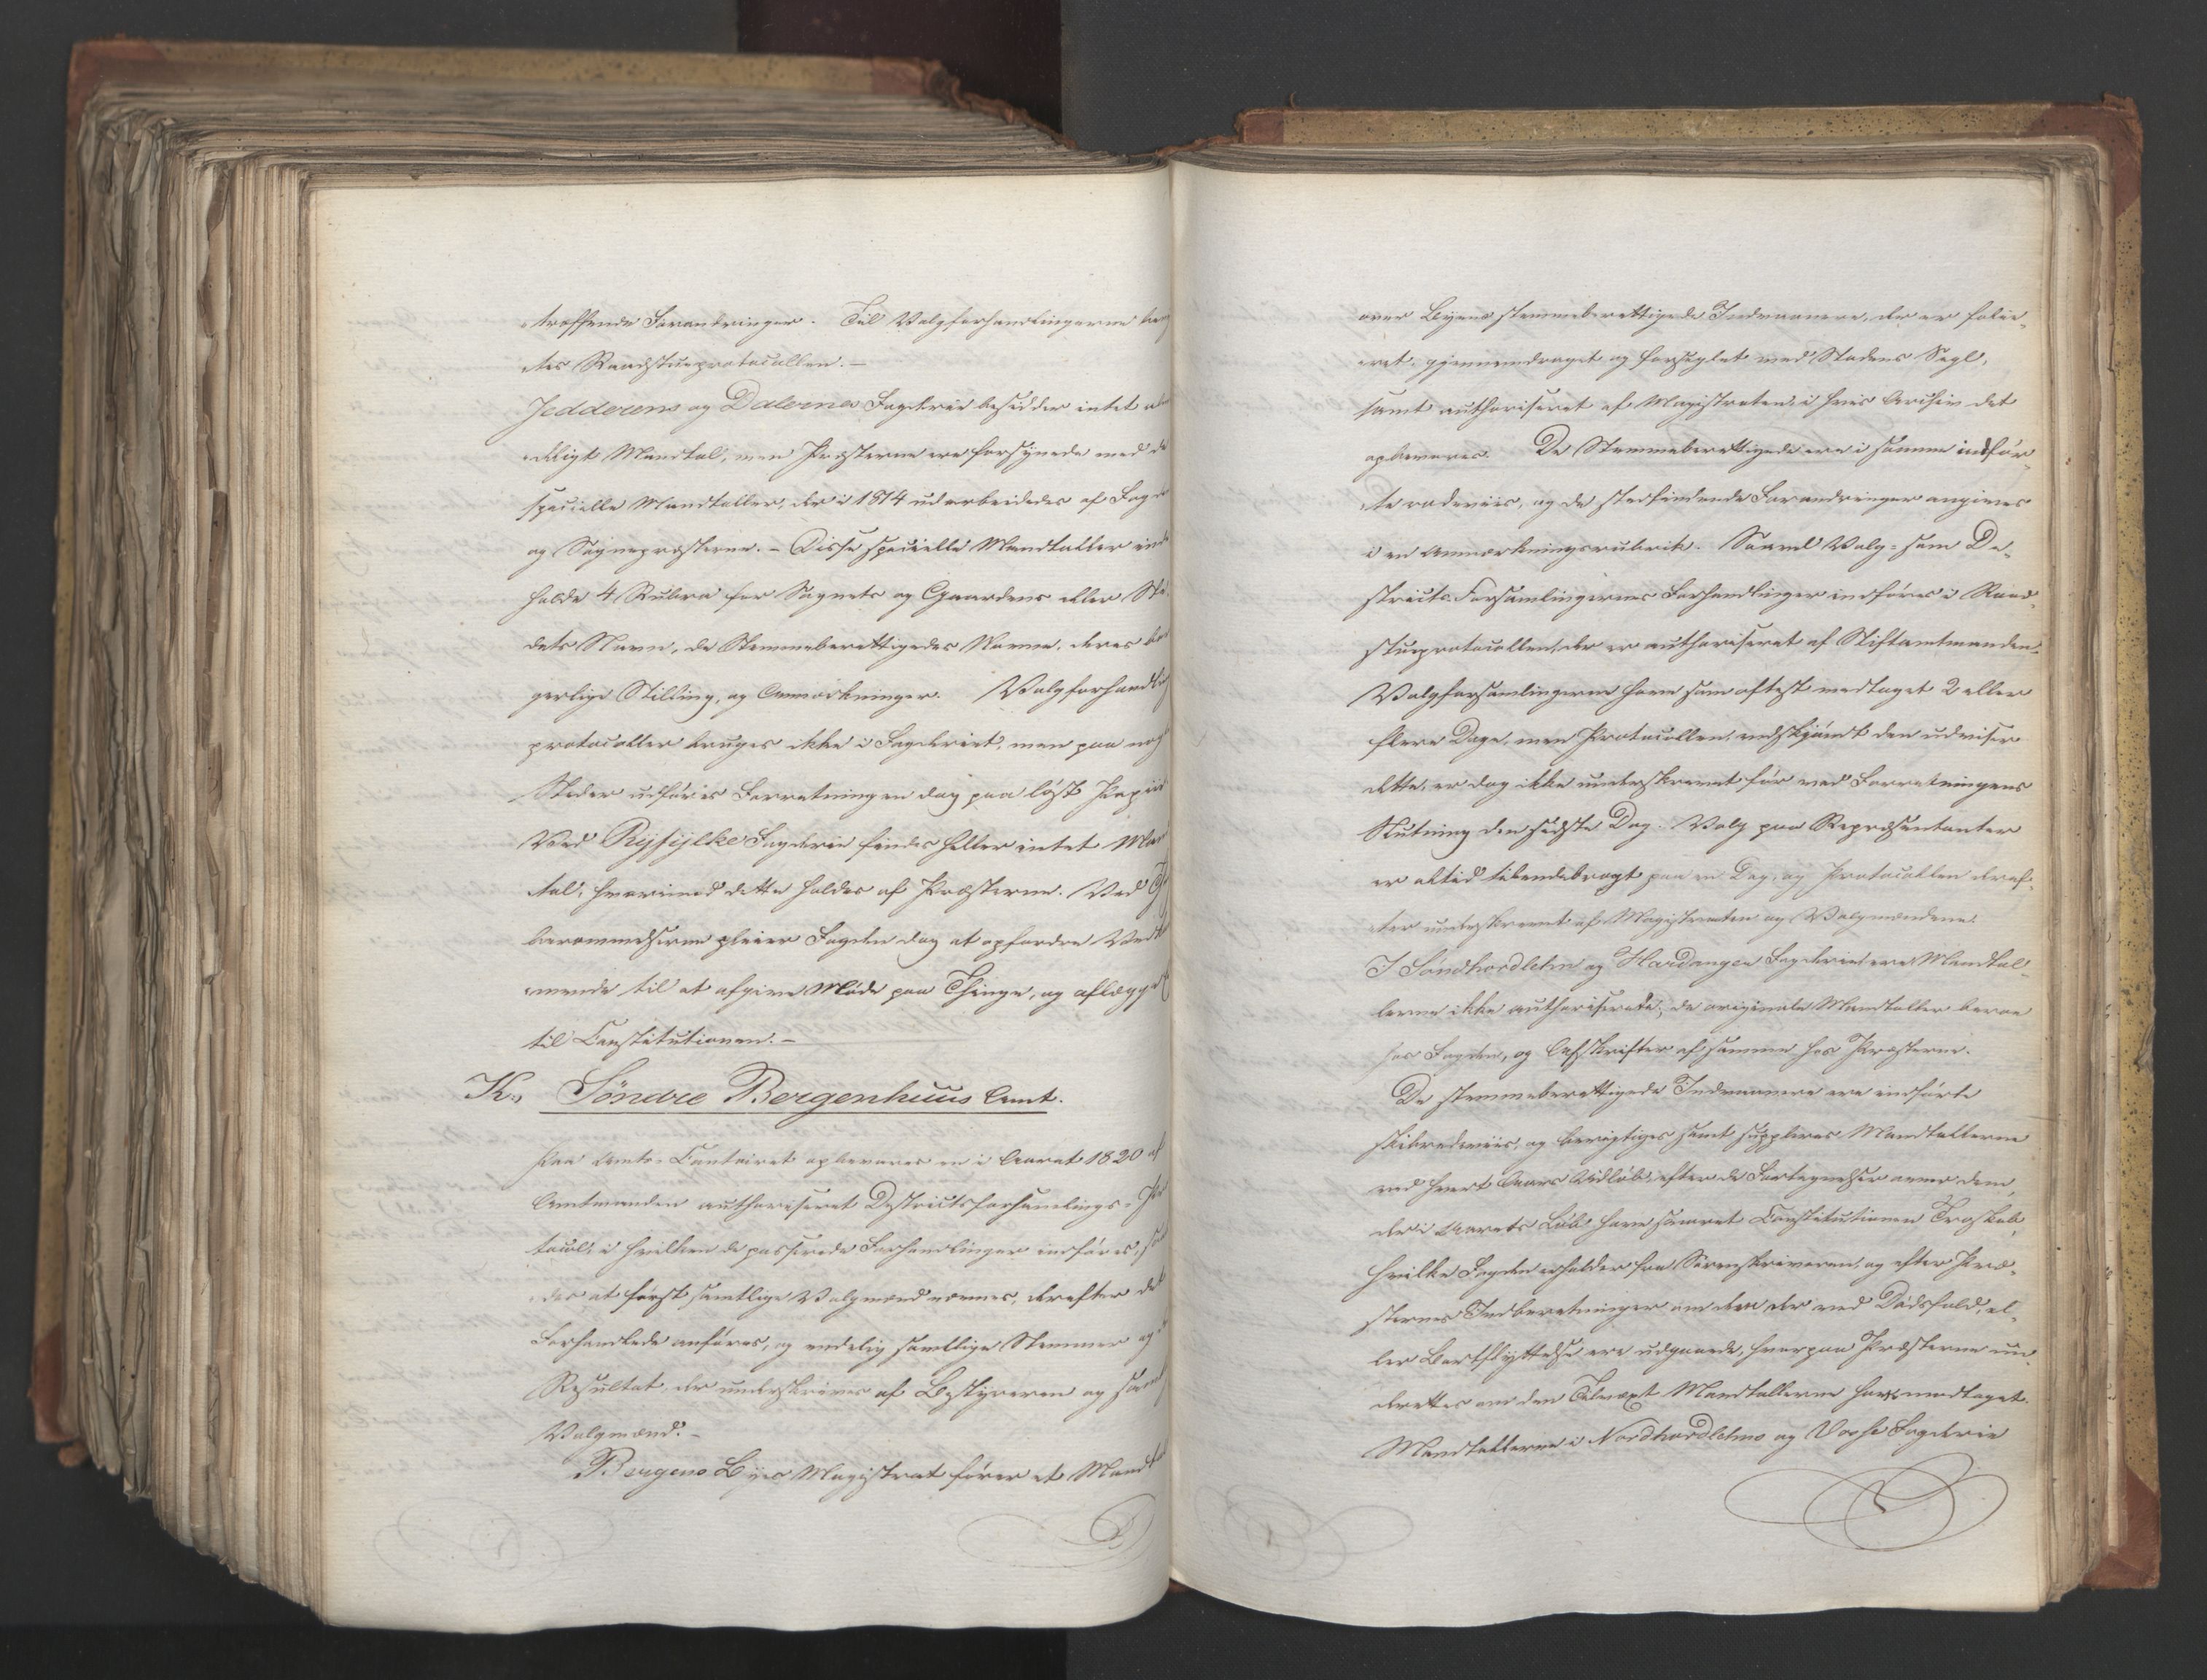 træffende Forandringer. Til Valgforhandlingerne
tes Raadstueprotocollen. —
Jedderens og Dalernes Fogderie besidder intet
deligt Mandtal, men Præsterne ere forsynede med de
specielle Mandtaller, der i 1814 udarbeidedes af
og Sognepræsterne. – Disse specielle Mandtaller
holde 4 Rubra for Sognets og Gaardens eller Ste-
dets Navn, de Stemmeberettigedes Navne, deres
gerlige Stilling, og Anmærkninger. Valgforhandl
protocoller bruges ikke i Fogderiet, men paa
Steder udføres Forretningen dog paa løst Papiir
Ved Ryfylke Fogderie findes heller intet Man
tal, hvorimod dette holdes af Præsterne. Ved
pleier Fogden dog at opfordre
mænde til at afgive Møde paa Thinge, og aflægge
til Constitutionen. –
K., Søndre Bergenhuus Amt.
Paa Amts-Contoiret opbevares en i Aaret 1820 af
Amtmanden authoriseret Districtsforsamlings-Pro
tocol, i hvilken de passerede Forhandlinger indføres,
des at først samtlige Valgmænd nævnes, derefter det
Forhandlede anføres, og endelig samtlige Stemmer og
Resultat, der underskrives af Bestyreren og
Valgmænd. –
Bergens Byes Magistrat fører et Mandtal
over Byens stemmeberettigede Indvaanere, der er folie-
eret, gjennemdraget og forseglet med Stadens Segl,
samt authoriseret af Magistraten, i hvis Archiv det
opbevares. De Stemmeberettigede ere i samme indfør-
te rodeviis, og de stedfindende Forandringer angives
i en Anmærkningsrubrik. Saavel Valg- som Di-
stricts-Forsamlingernes Forhandlinger indføres i Raad-
stueprotocollen, der er authoriseret af Stiftamtmanden.
Valgforsamlingerne have som oftest medtaget 2 eller
flere Dage, men Protocollen, endskjøndt den udviser
dette, er dog ikke underskrevet før ved Forretningens
Slutning den sidste Dag. Valg paa Repræsentanter
er altid tilendebragt paa en Dag, og Protocollen deref-
ter underskrevet af Magistraten og Valgmændene.
I Søndhordlehn og Hardanger Fogderie ere Mandtal-
lerne ikke authoriserede; de originale Mandtaller beroe
hos Fogden, og Afskrifter af samme hos Præsterne.
De stemmeberettigede Indvaanere ere indførte
skibredeviis, og berigtiges samt suppleres Mandtallerne
ved hvert Aars Udløb, efter de Fortegnelser over dem,
der i Aarets Løb have svoret Constitutionen Troskab,
hvilke Fogden erholder fra Sorenskriveren, og efter Præ-
sternes Indberetninger om dem der, ved Dødsfald, el-
ler Bortflyttelse ere udgaaede, hvorpaa Præsterne un-
derrettes om den Tilvæxt Mandtallerne have modtaget.
Mandtallerne i Nordhordlehns og Vosse Fogderie